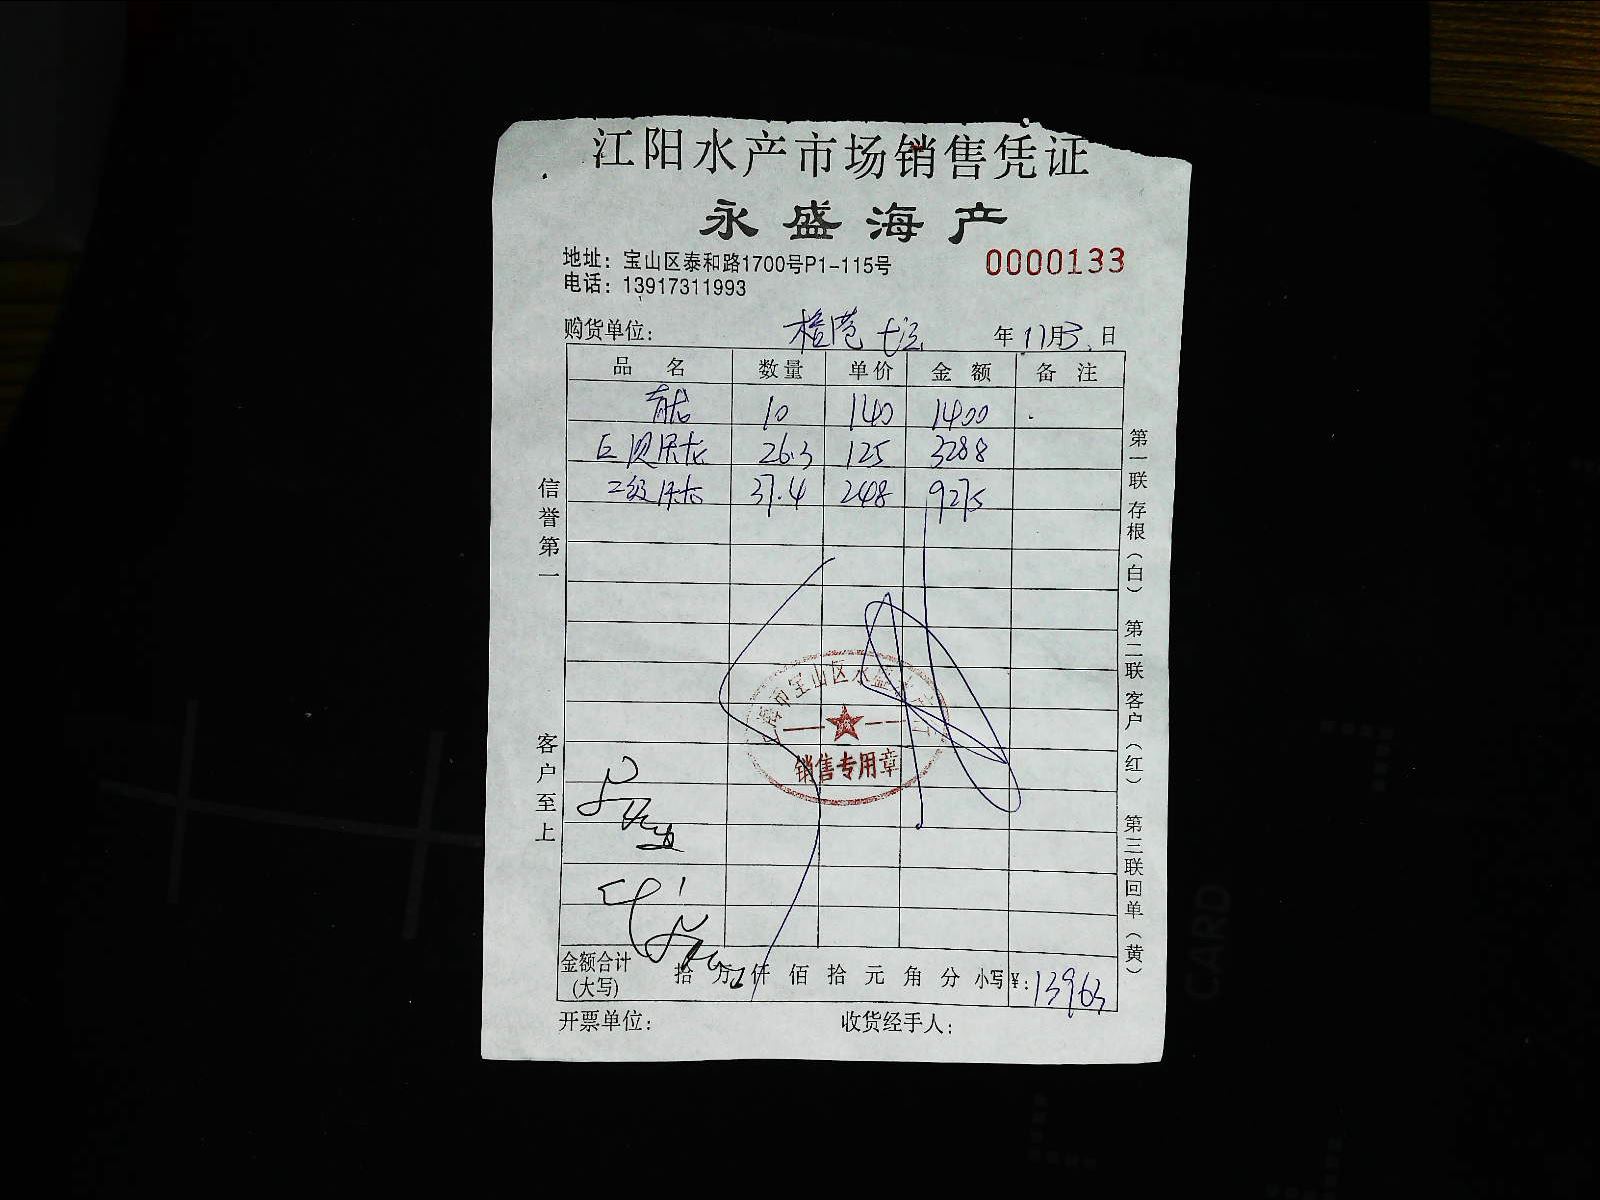 江阳水产市场销售凭证
永盛海产
地址：宝山区泰和路1700号P1-115号
0000133
电话：13917311993
购货单位：
年11月3日
品名 数量 单价 金额 备注
青龙 10 140 1400
巨贝 26.3 125 3288
二级 37.4 248 9275
信誉第一
客户至上
第一联存根（白） 第二联客户（红） 第三联回单（黄）
宝山区水
销售专用章
金额合计（大写） 拾 万 仟 佰 拾 元 角 分 小写¥：13963
开票单位： 收货经手人：